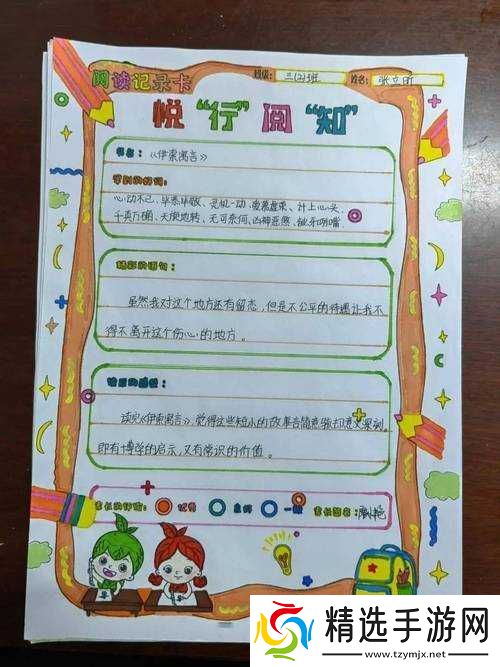 阅读记录卡 班级：三(2)班 姓名：张立昕
悦“行”阅“知”
书名：《伊索寓言》
学到的好词：
心动不已、毕恭毕敬、灵机一动、爱慕虚荣、计上心头、
千真万确、天旋地转、无可奈何、凶神恶煞、龇牙咧嘴
精彩的语句：
虽然我对这个地方还有留恋，但是不公平的待遇让我不
得不离开这个伤心的地方。
读后的感想：
读完《伊索寓言》，觉得这些短小的故事言简意赅却意义深刻，
即有博学的启示，又有常识的价值。
家长的评价： 优秀 良好 一般 家长签名：
精选手游网
www.tzymjx.net